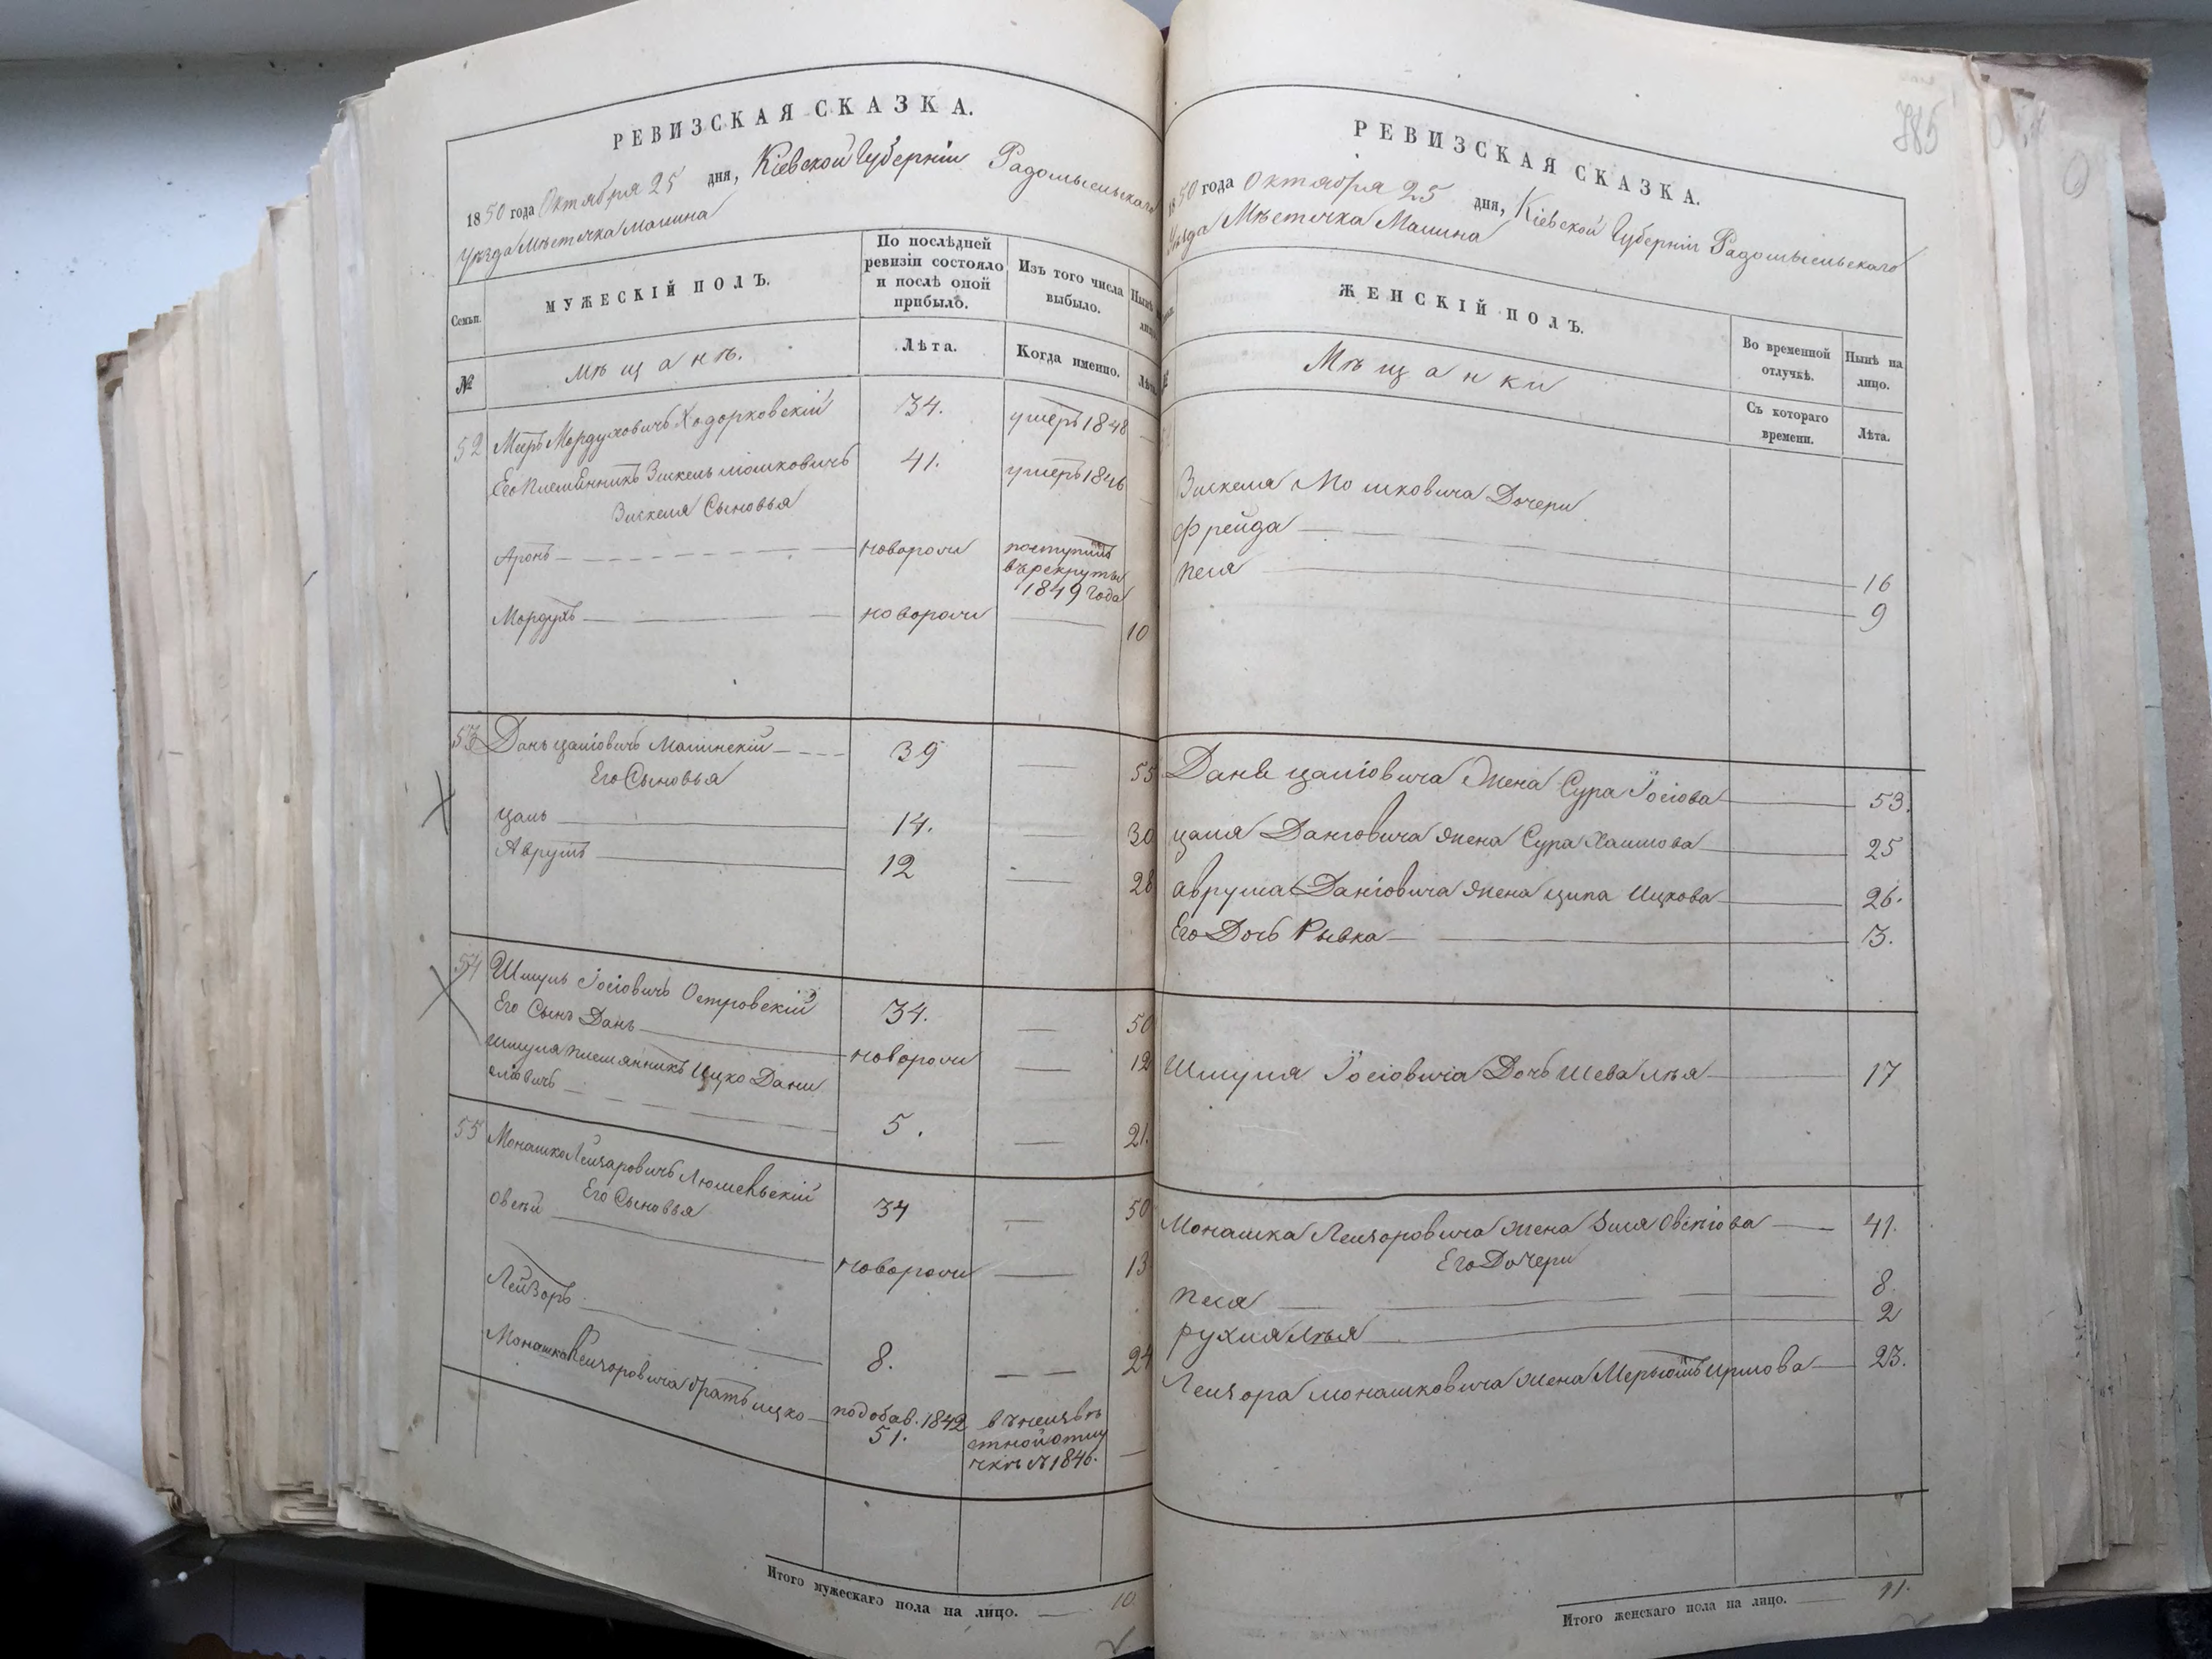 РЕВИЗСКАЯ СКАЗКА.
1850 года Октября 25 дня, Кіевской Губерніи Радомысльскаго
Уѣзда Мѣстечка Малина
Семьи.
МУЖЕСКІЙ ПОЛЪ.
По послѣдней
ревизіи состояло
и послѣ оной
прибыло.
Изъ того числа
выбыло.
Нынѣ
№
Мѣщанъ.
Лѣта.
Когда именно.
Лѣта
52 Меръ Мордуховичъ Ходорковскій 34. умеръ 1848
Его племянникъ Зискель Мошковичъ 41. умеръ 1846
Зискеля Сыновья
Аронъ новорож поступилъ
въ рекруты
1849 года
Мордухъ новорож 10
53 Дань Цаліовичъ Малинскій 39 55
Его Сыновья
Цаль 14. 30
Аврумъ 12 28
54 Шмуль Іосіовичъ Островскій 34. 50
Его Сынъ Дань новорож 12
Шмуля племянникъ Ицко Дани
еліовичъ 5. 21.
55 Монашко Лейзаровичъ 34 50
Его Сыновья
Овсѣй новорож 13
Лейзоръ 8. 24
Монашка Лейзоровича братъ Ицко по добав. 1842 въ неизвѣ
51. стной отлу
чкѣ съ 1846.
Итого мужескаго пола на лицо. 10.
385
РЕВИЗСКАЯ СКАЗКА.
1850 года Октября 25 дня, Кіевской Губерніи Радомысльскаго
Уѣзда Мѣстечка Малина
ЖЕНСКІЙ ПОЛЪ.
Во временной
отлучкѣ.
Нынѣ на
лицо.
Мѣщанки
Съ котораго
времени.
Лѣта.
Зискеля Мошковича Дочери
Фрейда 16
Песя 9
Даня Цаліовича Жена Сура Іосіова 53.
Цаля Даніовича жена Сура Хаимова 25
Аврума Даніовича жена Ципа Ицкова 26.
Его Дочь Рывка 3.
Шмуля Іосіовича Дочь Шева Лѣя 17
Монашка Лейзоровича жена Овсѣіова 41.
Его Дочери
Песя 8.
Рухля Лѣя 2
Лейзора Монашковича жена Ирмова 23.
Итого женскаго пола на лицо. 11.